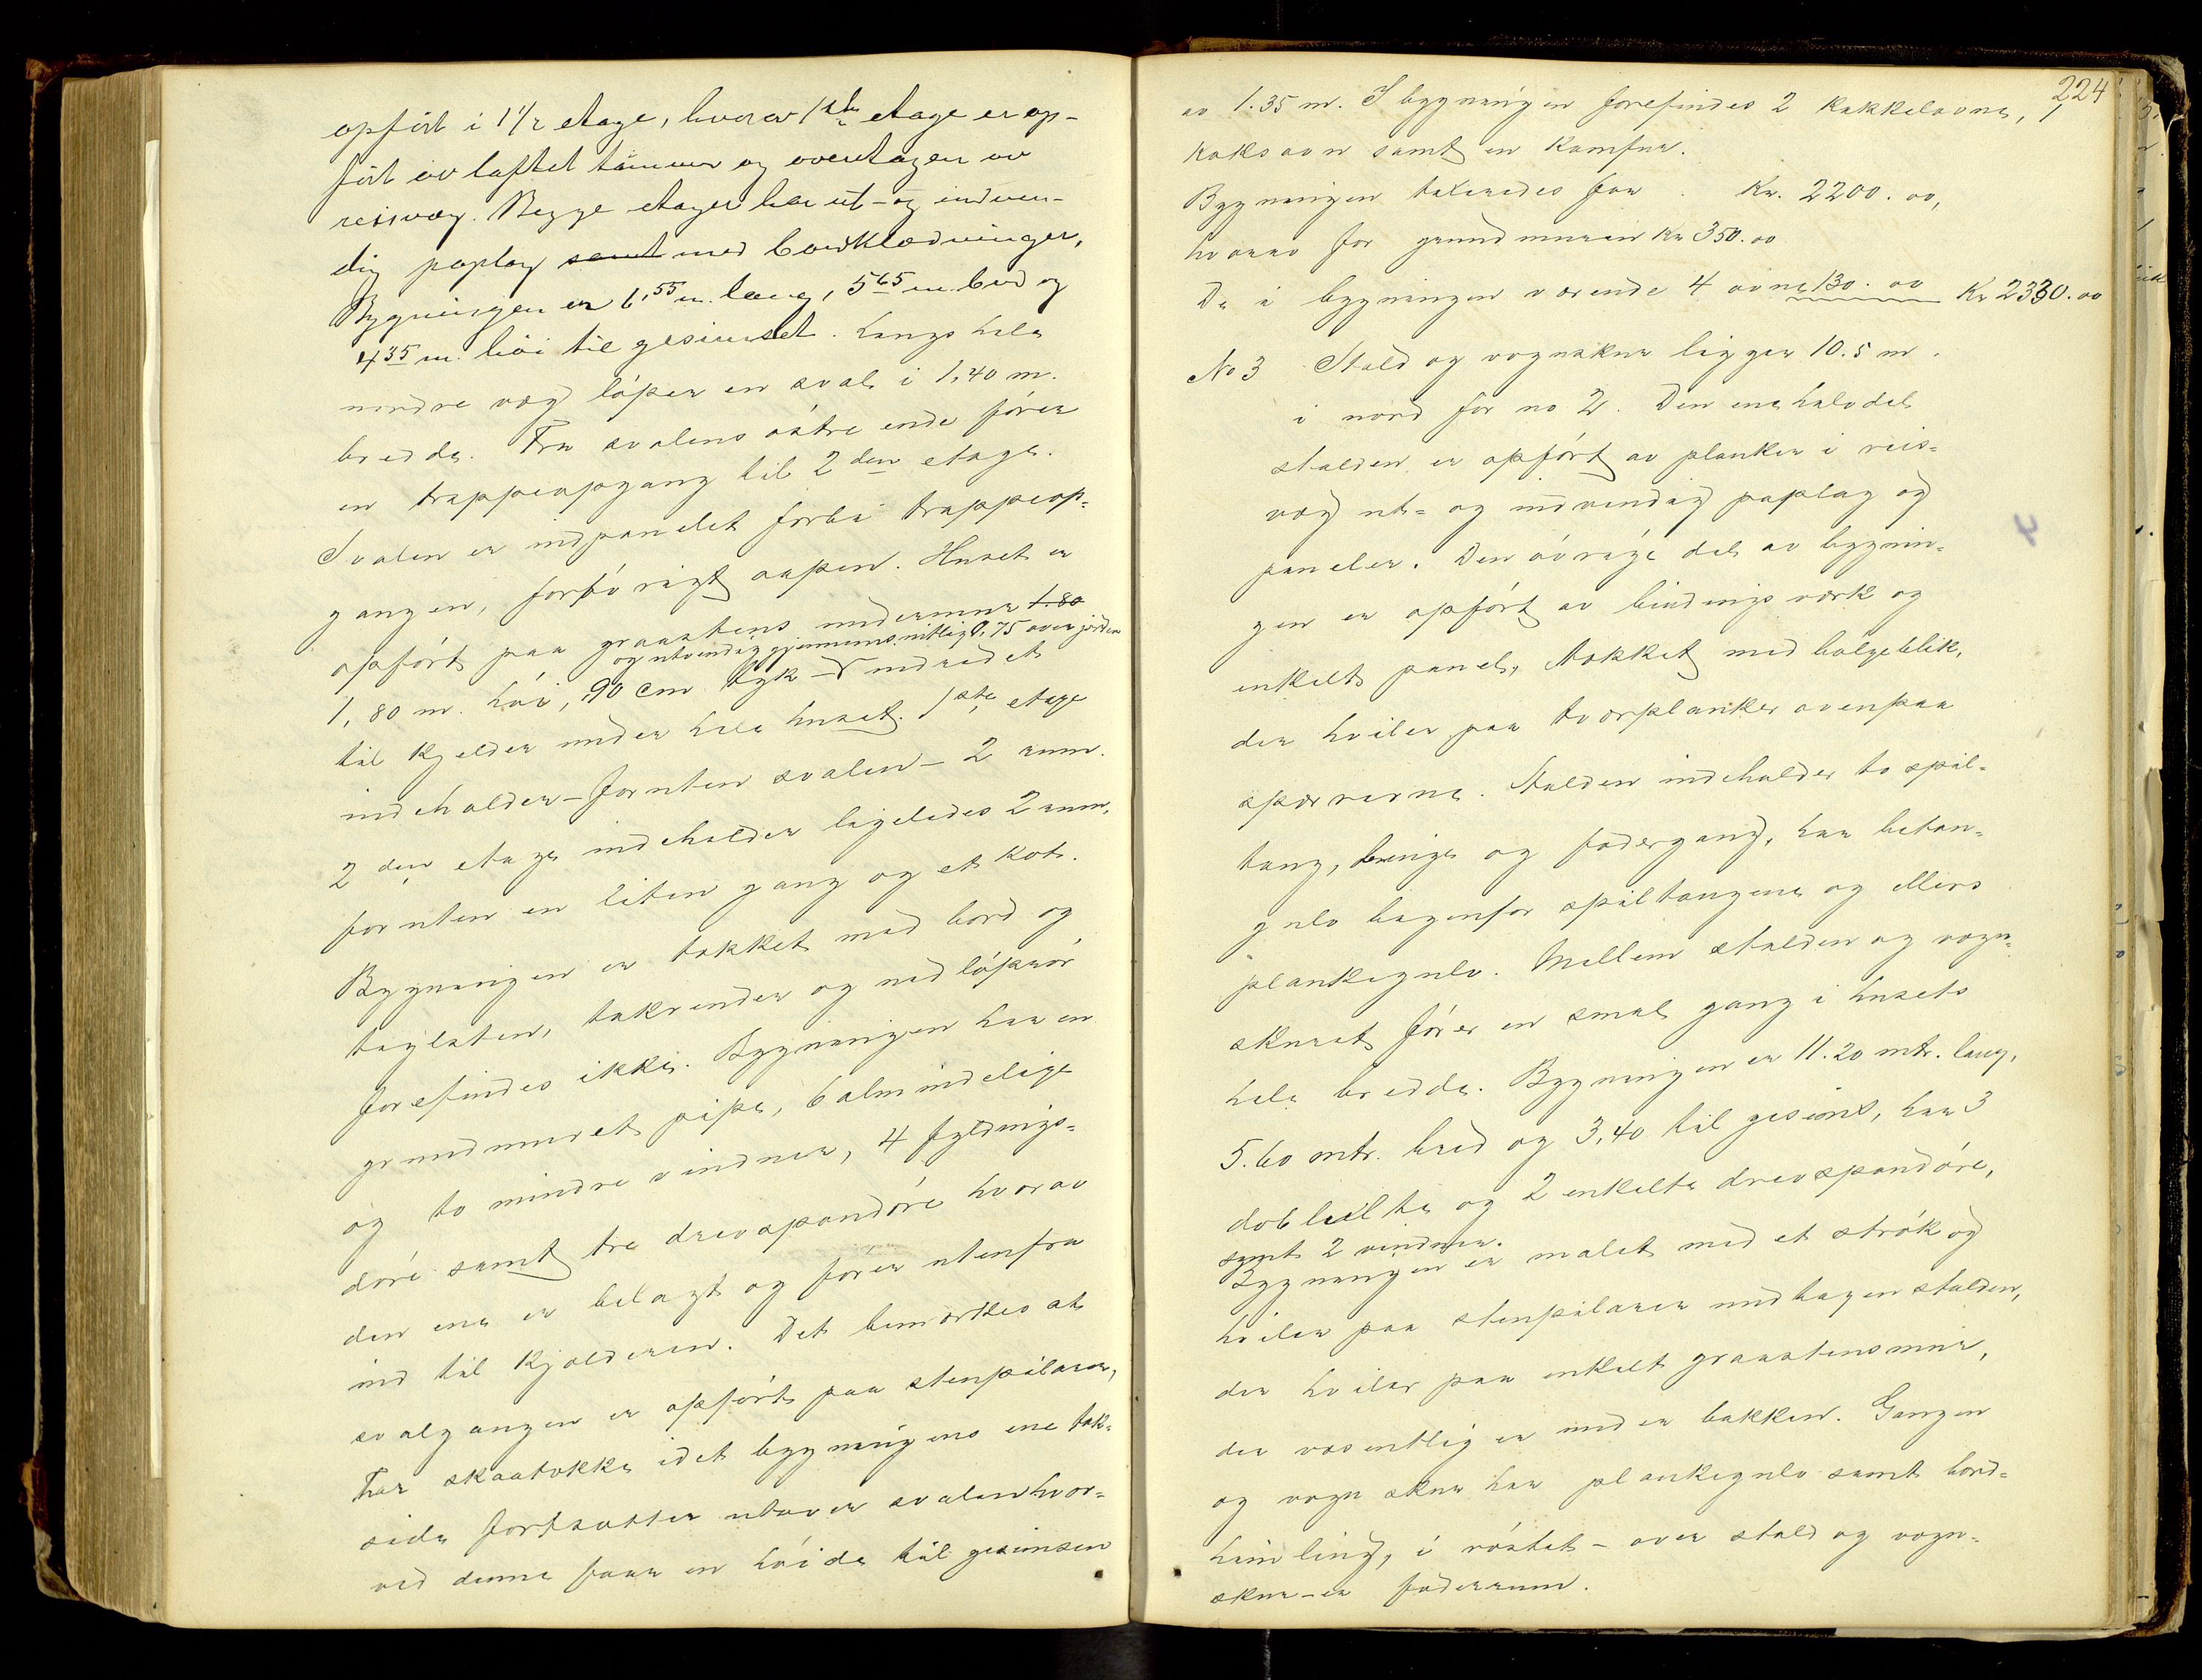 opfört i 1 1/2 etage, hvorav 1ste etage er op-
fört av laftet tömmer og overetagen av
reisværg. Begge etager har ut- og indven-
dig paplag samt med bordklædninger,
Bygningen er 6,55 m. lang, 5 65 m. bred og
4 35 m. höi til gesimset. Langs hele
nordre væg löper en sval i 1,40 m.
bredde. Fra svalens östre ende förer
en trappeopgang til 2 den etage.
Svalen er indpanelet forbi trappeop-
gangen, forövrigt aapen. Huset er
opfört paa graastens undermur 1.80
og utvendig gjennemsnitlig 0,75 over jorden
1,80 m. höi, 90 cm tyk - indredet
til kjelder under hele huset. 1ste etage
indeholder - foruten svalen - 2 rum.
2 den etage indeholder ligeledes 2 rum,
foruten en liten gang og et kot.
Bygningen er tækket med bord og
taglsten, takrender og nedlöpsrör
forefindes ikke. Bygningen har en
grundmuret pipe, 6 almindelige
og to mindre vinduer, 4 fyldings-
döre samt tre drevspandöre hvorav
den ene er belagt og förer utenfra
ind til kjælderen. Det bemærkes at
svalgangen er opfört paa stenpilarer,
har skaatække idet bygningens ene tak-
side fortsætter utover svalen hvor-
ved denne faar en höide til gesimsen
224
av 1.35 m. I bygningen forefindes 2 kakkelovne, 1
koksovn samt en komfur.
Bygningen takseredes for . Kr. 2200.oo,
hvorav for grundmuren kr 350.oo
De i bygningen værende 4 ovne 130.oo Kr 2330.oo
No 3 Stald og vognskur ligger 10.5 m.
i nord for no 2. Den ene halvdel
stalden er opfört av planker i reis-
væg ut- og indvendig paplag og
paneler. Den övrige del av bygnin-
gen er opfört av bindingsværk og
enkelt panel, tækket med bølgeblik,
der hviler paa tværplanker ovenpaa
sperrerne. Stalden indeholder to spil-
taug, binge og fodergang, har beton-
gulv bagenfor spiltaugene og ellers
plankegulv. Mellem stalden og vogn-
skuret förer en smal gang i husets
hele bredde. Bygningen er 11.20 mtr. lang,
5.60 mtr. bred og 3,40 til gesims, har 3
dobbelte og 2 enkelte drevspandöre,
samt 2 vinduer.
Bygningen er malet med et strök og
hviler paa stenpilarer undtagen stalden,
der hviler paa enkelt graastensmur,
der væsentlig er under bakken. Gangen
og vognskur har plankegulv samt bord-
himling, i röstet - over stald og vogn-
skur - er foderrum.